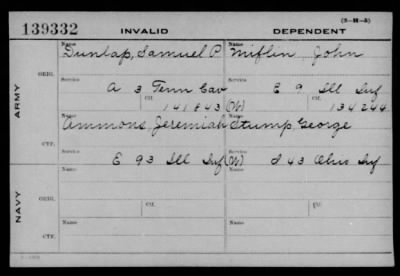 (3-H-5)
139332 INVALID DEPENDENT
Name Name
Dunlap, Samuel P. Miflin, John
ARMY
ORIG.
Service Service
A 3 Tenn Cav E 9 Ill Inf
Ctf. Ctf.
141843 (W) 134244
Name Name
Ammons, Jeremiah Stump George
CTF.
Service Service
E 93 Ill Inf (W) I 43 Ohio Inf
NAVY
Name Name
ORIG.
Ctf.
Name Name
CTF.